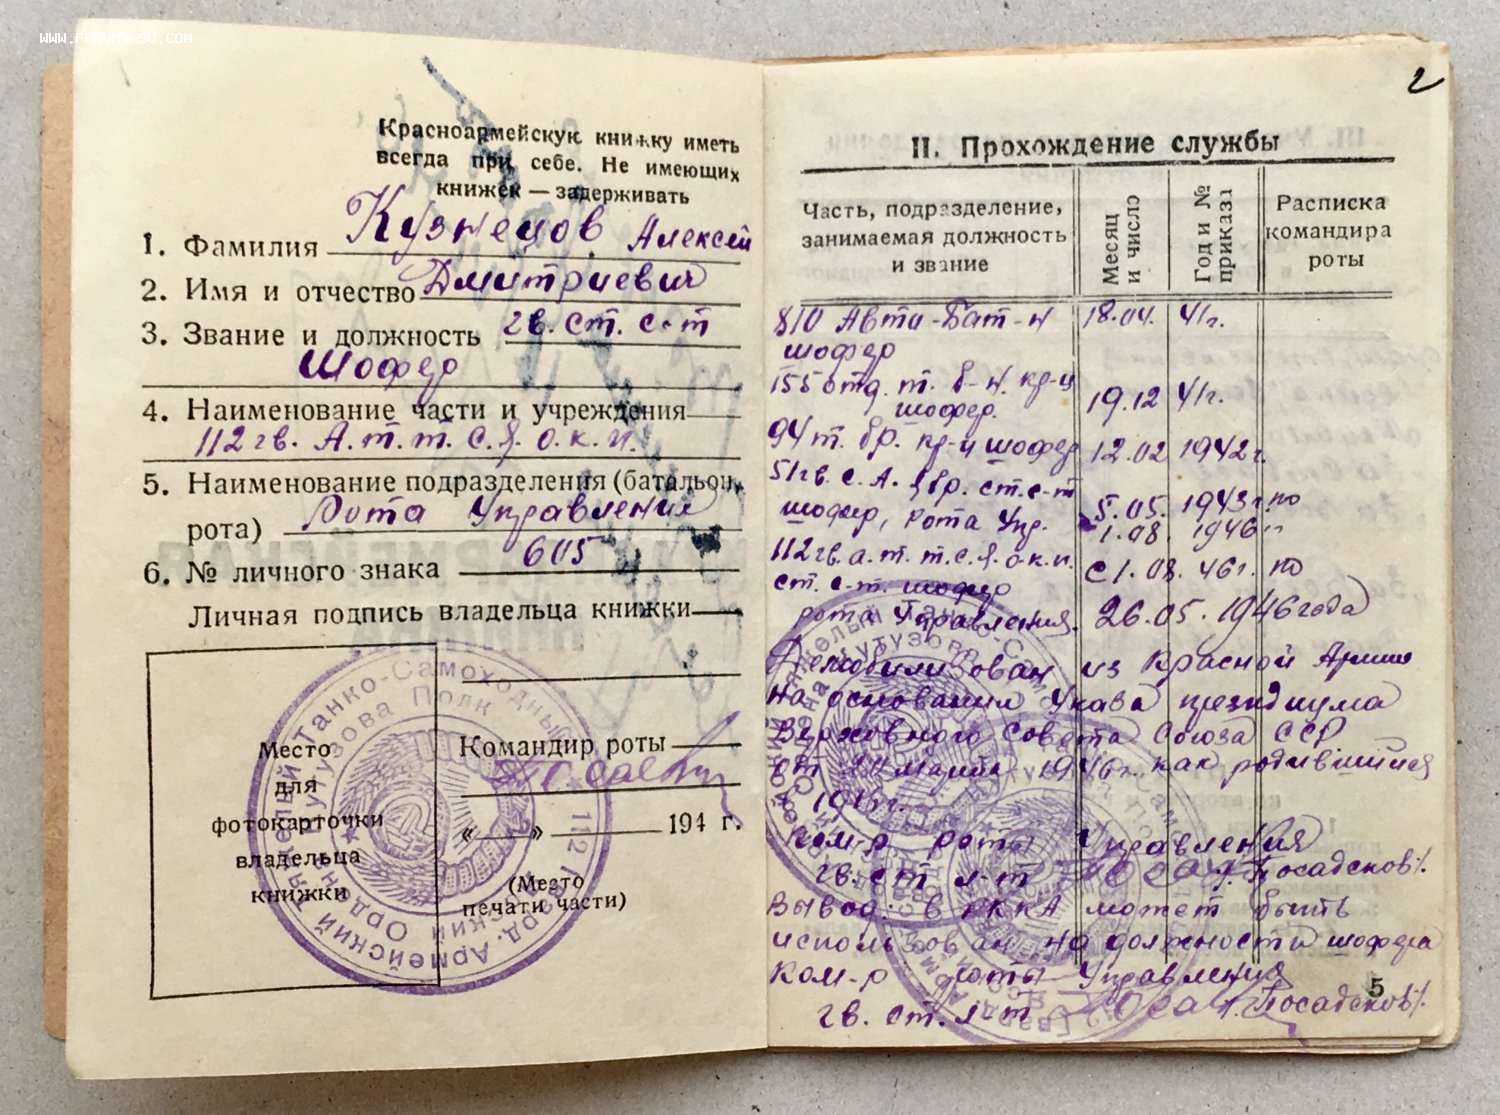 WWW.FORUMS-SU.COM
Красноармейскую книжку иметь
всегда при себе. Не имеющих
книжек — задерживать
1. Фамилия Кузнецов Алексей
2. Имя и отчество Дмитриевич
3. Звание и должность гв. ст. с-т
шофер
4. Наименование части и учреждения
112 гв. А. т. т. с. п. о. к. п.
5. Наименование подразделения (батальон,
рота) Рота Управления
6. № личного знака 605
Личная подпись владельца книжки
Место
для
фотокарточки
владельца
книжки
Командир роты
« » 194 г.
(Место
печати части)
2
II. Прохождение службы
Часть, подразделение,
занимаемая должность
и звание
Месяц
и число
Год и №
приказа
Расписка
командира
роты
810 Авто-Бат-н 18.04. 41г.
шофер
155 отд. т. б-н. кр-ц
шофер. 19.12 41г.
94 т. бр. кр-ц шофер 12.02 1942г.
51 гв. с. А. п бр. ст. с-т
шофер, рота Упр. 5.05. 1943г. по
1.08. 1946
112 гв. а. т. т. с. п. о. к. п. с 1. 08. 46г. по
ст. с-т. шофер
рота Управления. 26.05. 1946 года
Демобилизован из Красной Армии
на основании Указа президиума
Верховного Совета Союза ССР
от марта 1946г. как родившийся
ком-р роты Управления
гв. ст л-т Посадсков
Вывод: в РККА может быть
использован на должности шофера
Ком-р роты Управления
гв. ст. л-т Посадсков
5